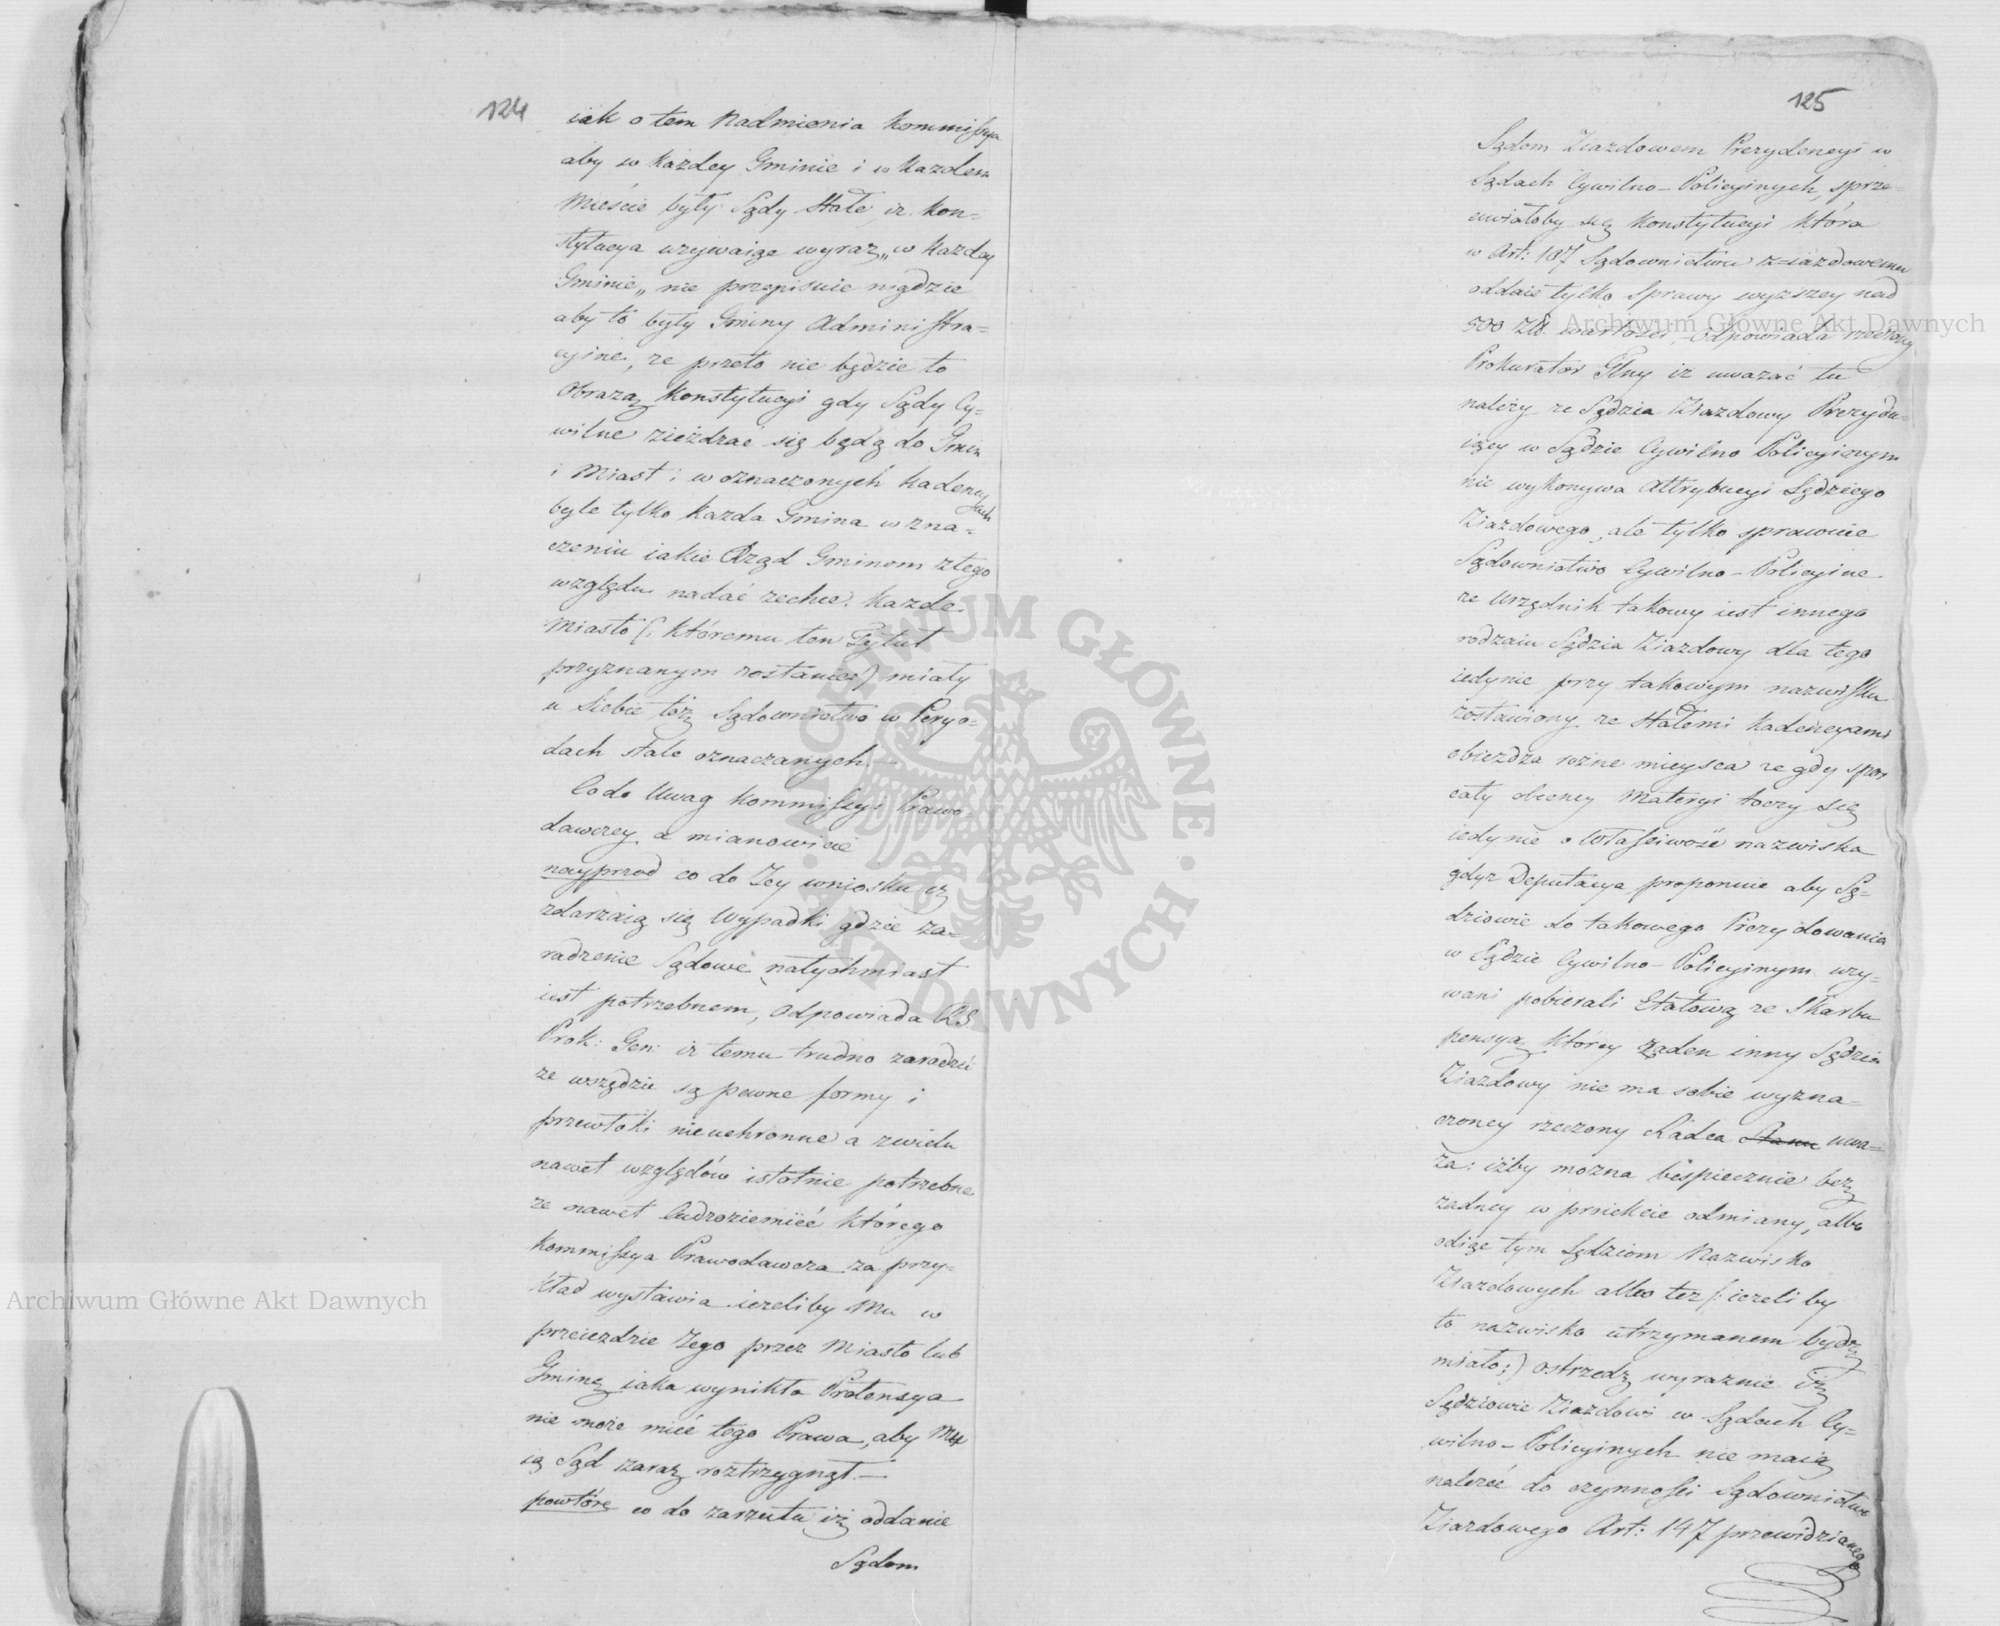 124
iak o tem nadmienia Kommissya
aby w każdey Gminie i w każdem
Mieście były Sądy Stałe, iż Kon-
stytucya używaiąc wyraz „w każdey
Gminie„ nie przepisuie nigdzie
aby to były Gminy Administra-
cyine, że przeto nie będzie to
obrazą Konstytucyi gdy Sądy Cy-
wilne zieżdzać się będą do Gmin
i Miast i w oznaczonych kadencyach
byle tylko każda Gmina w zna-
czeniu iakie Rząd Gminom z tego
względu nadać zechce. każde
Miasto (: któremu ten Tytuł
przyznanym zostanie:) miały
u siebie toż Sądownictwo w Peryo-
dach stale oznaczanych. —
Co do Uwag Kommissyi Prawo-
dawczey a mianowicie
nayprzod co do Jey wniosku iż
zdarzaią się wypadki gdzie za-
radzenie Sądowe natychmiast
iest potrzebnem, odpowiada R.S.
Prok: Gen: iż temu trudno zaradzić
że wszędzie są pewne formy i
przewłoki nieuchronne a z wielu
nawet względów istotnie potrzebne
że nawet Cudzoziemiec którego
Kommissya Prawodawcza za przy-
kład wystawia ieżeliby Mu w
przeieździe Jego przez Miasto lub
Gminę iaka wynikła Pretensya
nie może mieć tego Prawa, aby Mu
ią Sąd zaraz roztrzygnął. —
powtóre co do zarzutu iż oddanie
Sądom
125
Sądom Ziazdowem Prezydencyi w
Sądach Cywilno-Policyinych, sprze-
ciwiałoby się Konstytucyi która
w Art: 187 Sądownictwu ziazdowemu
oddaie tylko Sprawy wyższey nad
500 Zł. wartości, odpowiada rzeczony
Prokurator Glny iż uważać tu
należy że Sędzia Ziazdowy Prezydu-
iący w Sądzie Cywilno Policyinym
nie wykonywa Attrybucyi Sędziego
Ziazdowego, ale tylko sprawuie
Sądownictwo Cywilno-Policyine
że Urzędnik takowy iest innego
rodzaiu Sędzia Ziazdowy dla tego
iedynie przy takowym nazwisku
zostawiony że Stałemi kadencyami
obieżdza różne mieysca że gdy spor
cały obecney Materyi toczy się
iedynie o właściwość nazwiska
gdyż Deputacya proponuie aby Sę-
dziowie do takowego Prezydowania
w Sądzie Cywilno-Policyinym uży-
wani pobierali Etatową ze Skarbu
pensyą którey żaden inny Sędzia
Ziazdowy nie ma sobie wyzna-
czoney rzeczony Radca Stanu uwa-
ża: iżby można bespiecznie bez
żadney w proiekcie odmiany, albo
odiąć tym Sędziom Nazwisko
Ziazdowych albo też (: ieżeli by
to nazwisko utrzymanem bydź
miało:) ostrzedz wyraznie iż
Sędziowie Ziazdowi w Sądach Cy-
wilno-Policyinych nie maią
należeć do czynności Sądownictwa
Ziazdowego Art: 147 przewidzianego
Archiwum Główne Akt Dawnych
Archiwum Główne Akt Dawnych
ARCHIWUM GŁÓWNE · AKT DAWNYCH ·